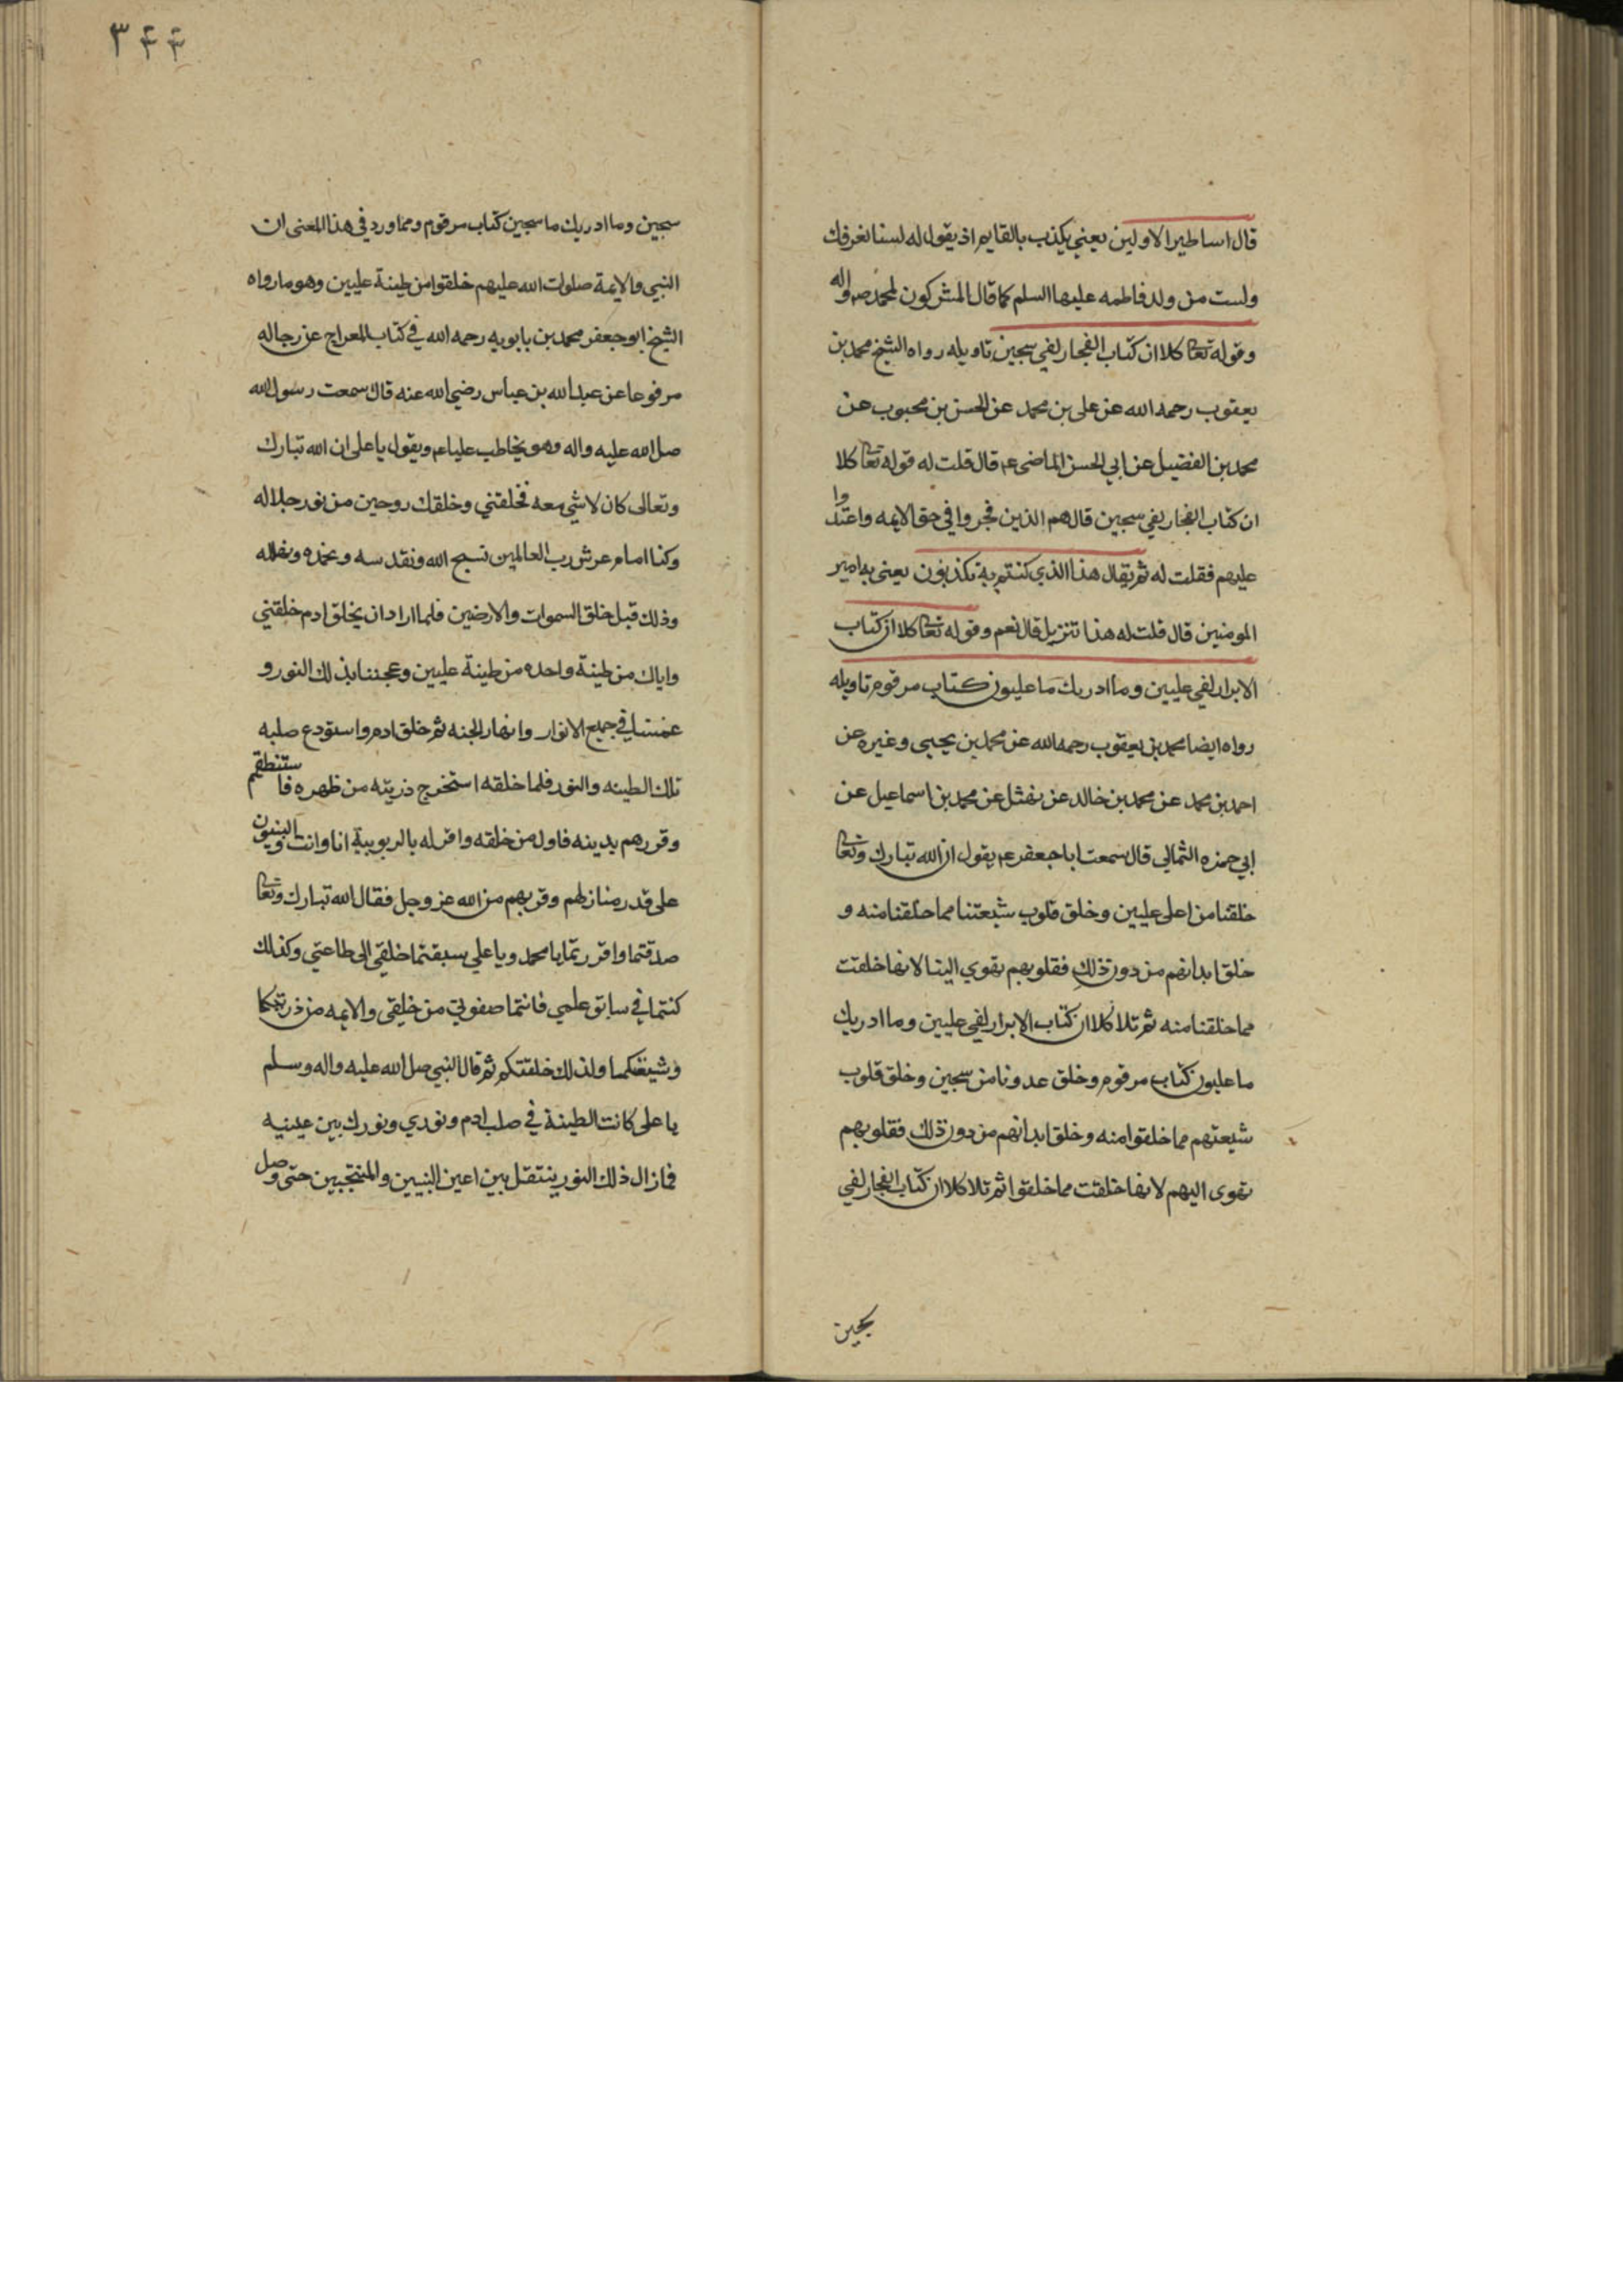 قال اساطير الاولين يعني يكذب بالقايم اذ يقول له لسنا نعرفك
ولست من ولد فاطمه عليها السلم كما قال المشركون لمحمد ص واله
وقوله تعا كلا ان كتاب الفجار لفي سجين تاويله رواه الشيخ محمد بن
يعقوب رحمه الله عن علي بن محمد عن الحسن بن محبوب عن
محمد بن الفضيل عن ابي الحسن الماضي ع قال قلت له قوله تعا كلا
ان كتاب الفجار لفي سجين قال هم الذين فجروا في حق الايمه واعتدوا
عليهم فقلت له ثم يقال هذا الذي كنتم به تكذبون يعني به امير
المومنين قال قلت له هذا تنزيل قال نعم وقوله تعا كلا ان كتاب
الابرار لفي عليين وما ادريك ما عليون كتاب مرقوم تاويله
رواه ايضا محمد بن يعقوب رحمه الله عن محمد بن يحيى وغيره عن
احمد بن محمد عن محمد بن خالد عن نهشل عن محمد بن اسماعيل عن
ابي حمزه الثمالي قال سمعت ابا جعفر ع يقول ان الله تبارك وتعا
خلقنا من اعلى عليين وخلق قلوب شيعتنا مما خلقنا منه و
خلق ابدانهم من دون ذلك فقلوبهم تهوي الينا لانها خلقت
مما خلقنا منه ثم تلا كلا ان كتاب الابرار لفي عليين وما ادريك
ما عليون كتاب مرقوم وخلق عدونا من سجين وخلق قلوب
شيعتهم مما خلقوا منه وخلق ابدانهم من دون ذلك فقلوبهم
تهوى اليهم لانها خلقت مما خلقوا ثم تلا كلا ان كتاب الفجار لفي
سجين
٣٤٤
سجين وما ادريك ما سجين كتاب مرقوم ومما ورد في هذا المعنى ان
النبي والايمة صلوات الله عليهم خلقوا من طينة عليين وهو ما رواه
الشيخ ابو جعفر محمد بن بابويه رحمه الله في كتاب المعراج عن رجاله
مرفوعا عن عبد الله بن عباس رضي الله عنه قال سمعت رسول الله
صل الله عليه واله وهو يخاطب عليا ع ويقول يا على ان الله تبارك
وتعالى كان لا شي معه فخلقني وخلقك روحين من نور جلاله
وكنا امام عرش رب العالمين نسبح الله ونقدسه ونحمده ونهلله
وذلك قبل خلق السموات والارضين فلما اراد ان يخلق ادم خلقني
واياك من طينة واحده من طينة عليين وعجننا بذلك النور و
غمسنا في جميع الانوار وانهار الجنه ثم خلق ادم واستودع صلبه
تلك الطينه والنور فلما خلقه استخرج ذريته من ظهره فاستنطقهم
وقررهم بدينه فاول من خلقه واقر له بالربوبية انا وانت والنبيون
على قدر منازلهم وقربهم من الله عز وجل فقال الله تبارك وتعا
صدقتما واقررتما يا محمد ويا علي سبقتما خلقي الى طاعتي وكذلك
كنتما في سابق علمي فانتما صفوتي من خلقي والايمه من ذريتكما
وشيعتكما ولذلك خلقتكم ثم قال النبي صل الله عليه واله وسلم
يا على كانت الطينة في صلب ادم ونوري ونورك بين عينيه
فما زال ذلك النور ينتقل بين اعين النبيين والمنتجبين حتى وصل